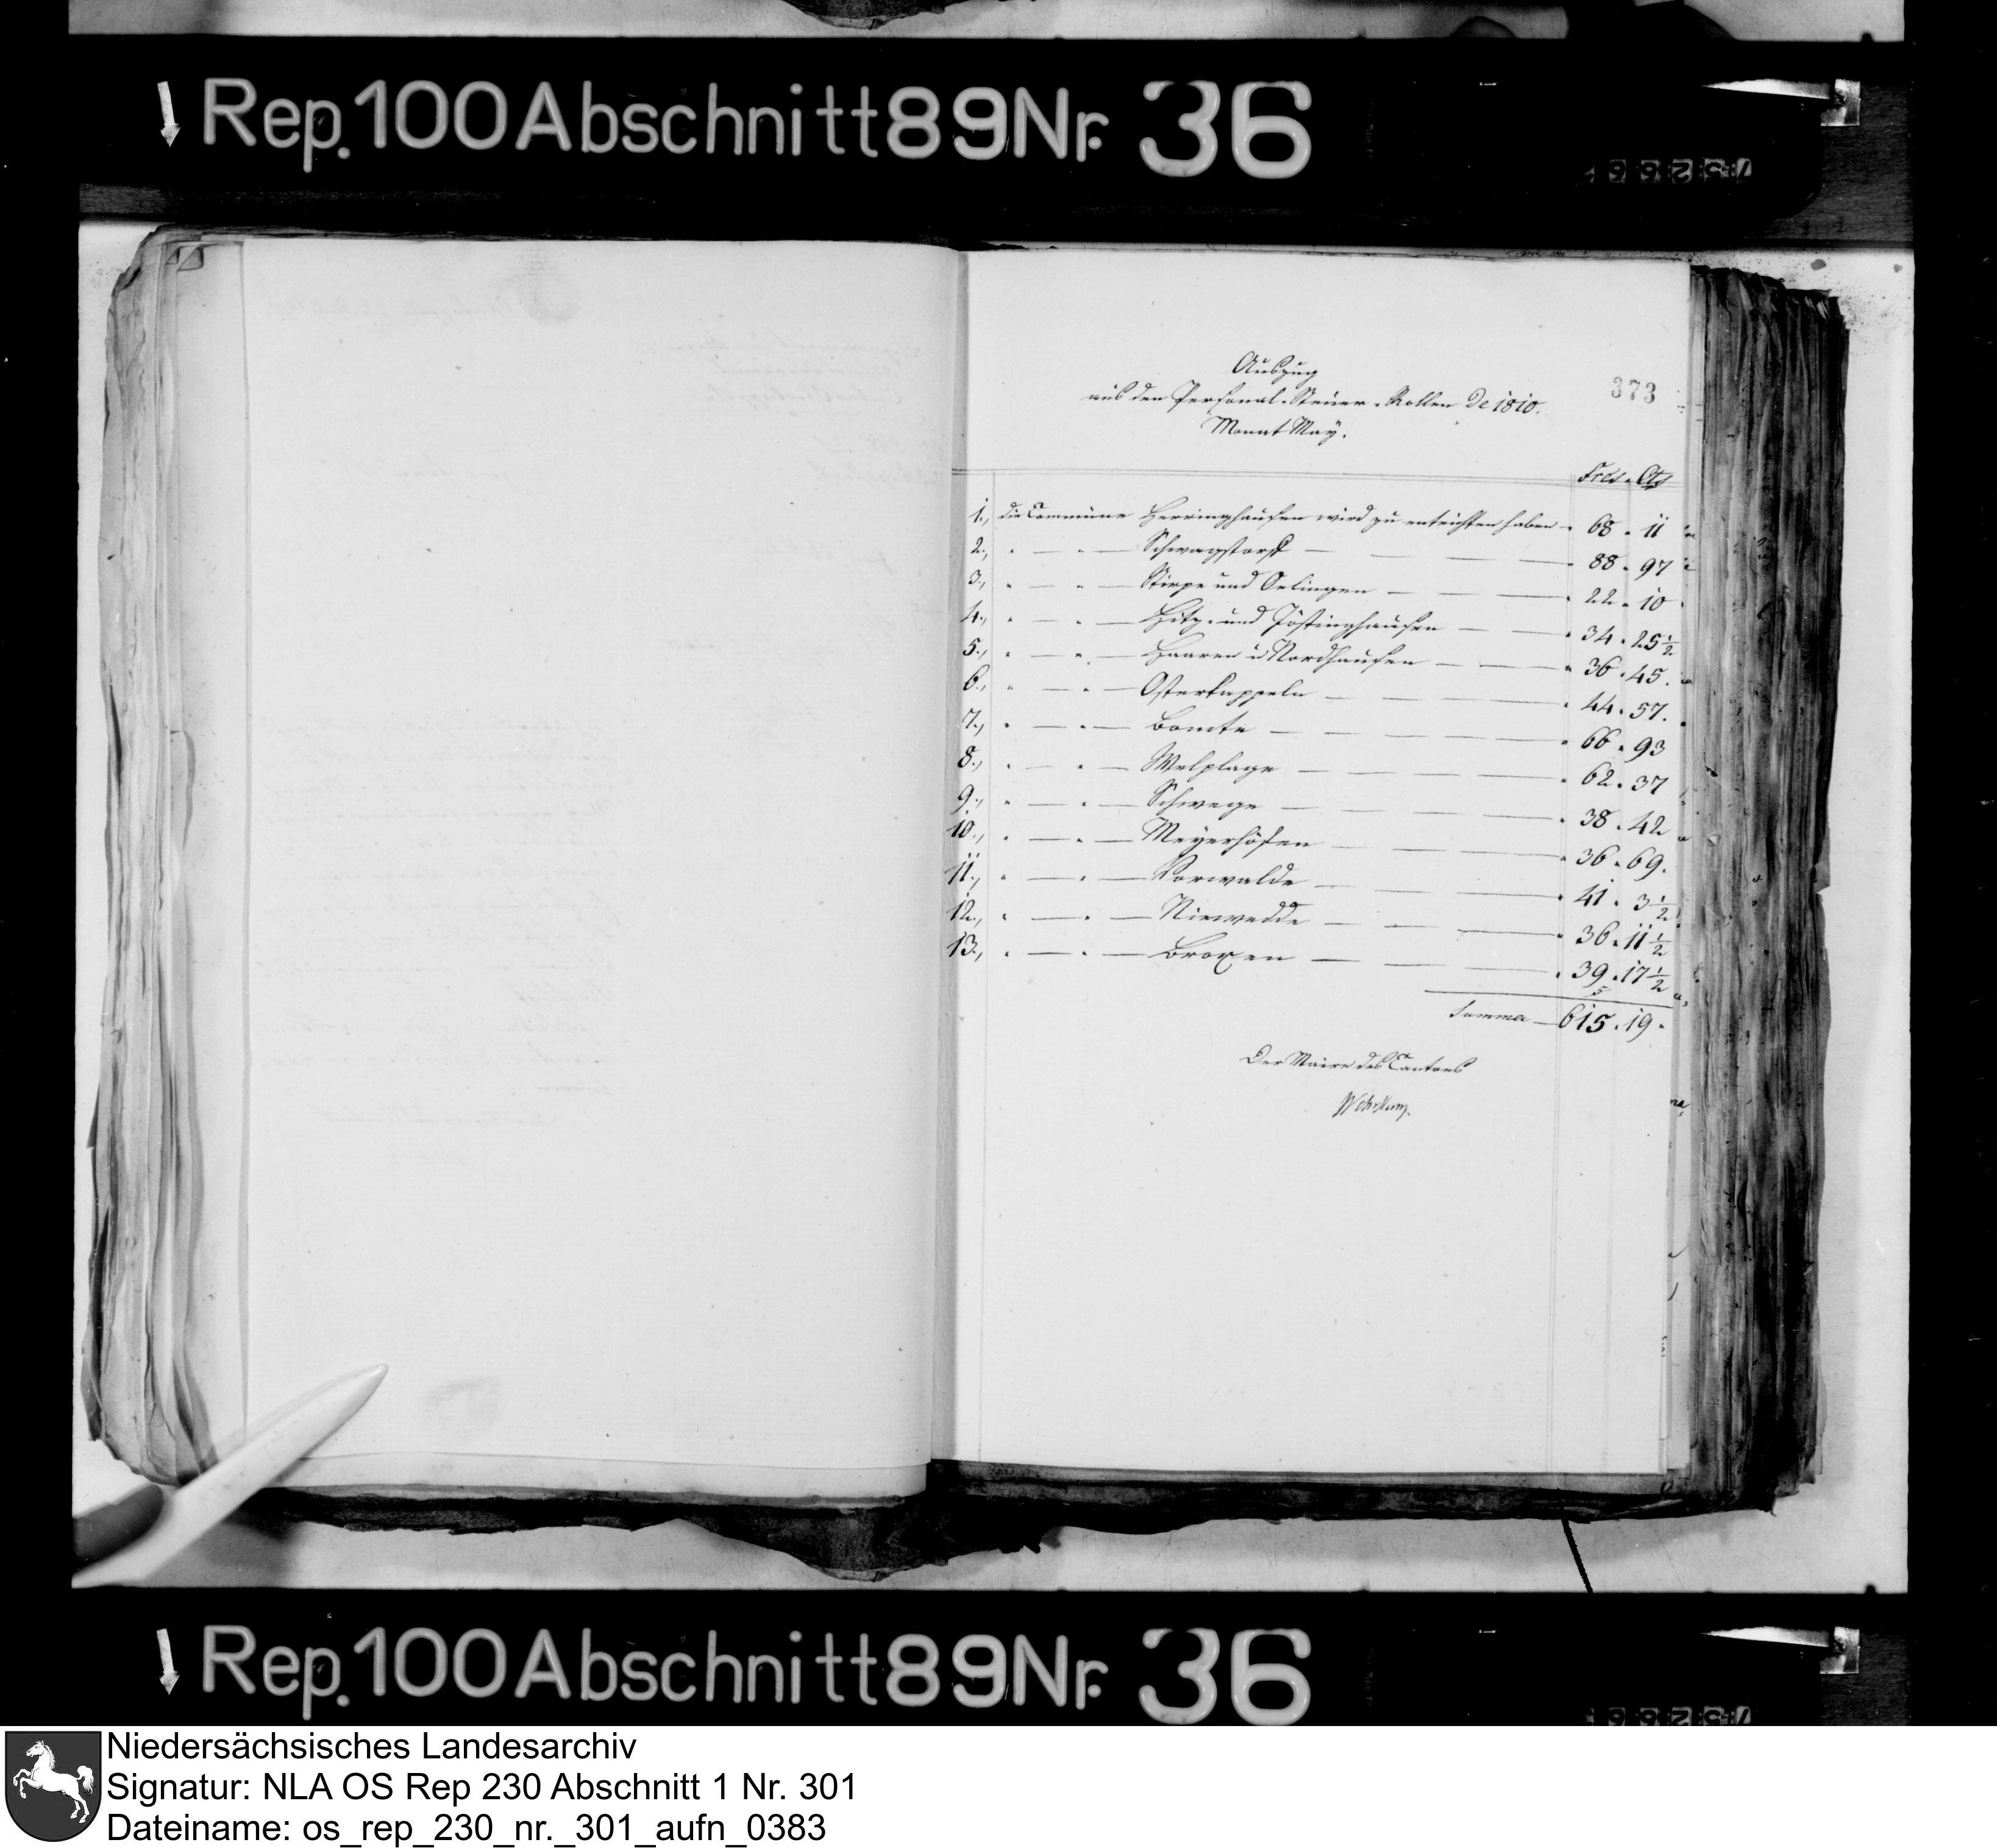 Rep. 100 Abschnitt 89 Nr. 36
373
Auszug
aus den Personal-Steuer-Rollen de 1810.
Monat May.
Frcs. Cts
1., die Commüne Herringhausen wird zu entrichten haben - 68 . 11
2., " — " — Schwagstorff — — — 88 . 97
3., " — " — Stirpe und Oelingen — — — 22 . 10
4., " — " — Hitz- und Jöstinghausen — — 34 . 25 1/2
5., " — " — Haaren u Nordhausen — — 36 . 45.
6., " — " — Osterkappeln — — — 44 . 57.
7., " — " — Bomte — — — 66 . 93
8., " — " — Welplage — — — 62 . 37
9., " — " — Schwege — — — 38 . 42
10., " — " — Meyerhöfen — — — 36 . 69.
11., " — " — Vorwalde — — — 41 . 3 1/2
12., " — " — Nirwedde — — — 36 . 11 1/2
13., " — " — Broxen — — — 39 . 17 1/2
Summa — 615 . 19.
Der Maire des Cantons
Rep. 100 Abschnitt 89 Nr. 36
Niedersächsisches Landesarchiv
Signatur: NLA OS Rep 230 Abschnitt 1 Nr. 301
Dateiname: os_rep_230_nr._301_aufn_0383